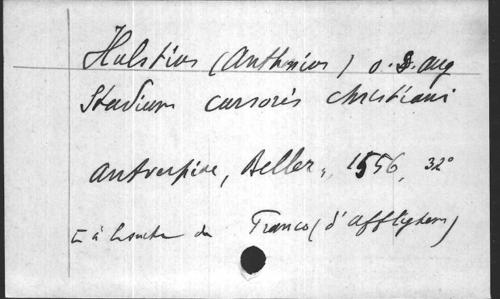 Hulstius (Anthonius) o. S. Aug
Stadium cursoris christiani
Antverpiae, Beller, 1556, 32°
à la suite de Franco (d'Afflighem)